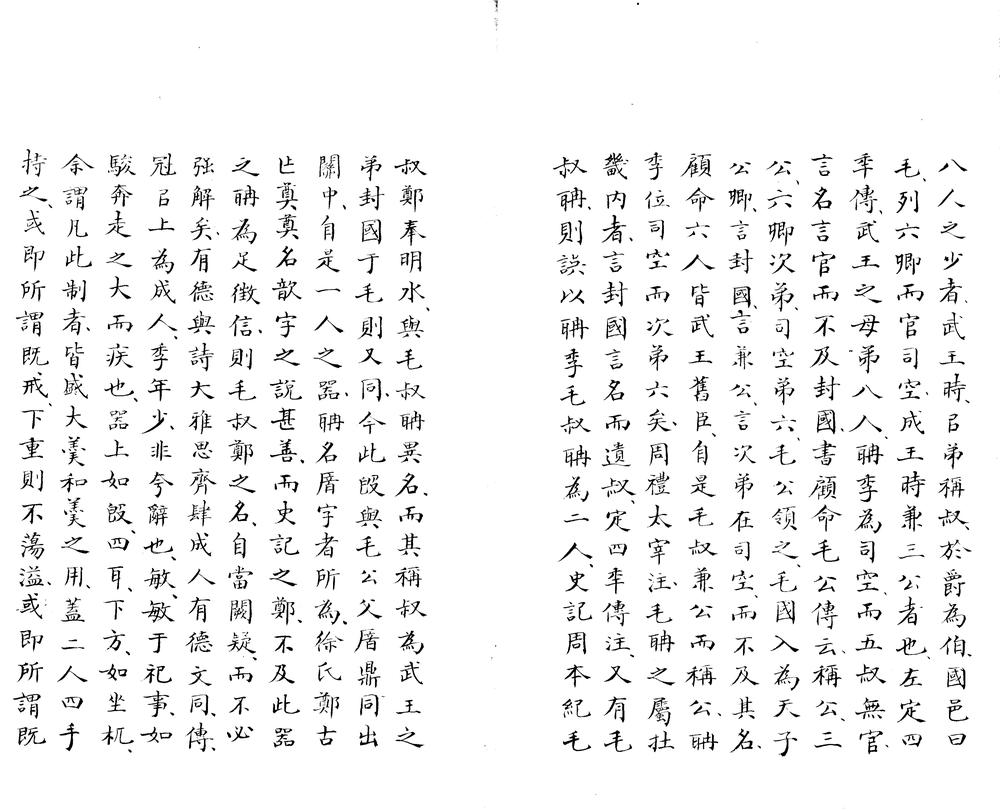 八人之少者、武王時、㠯弟稱叔、於爵為伯、國邑曰
毛、列六卿而官司空、成王時兼三公者也、左定四
年傳、武王之母弟八人、聃季為司空、而五叔無官、
言名言官而不及封國、書顧命毛公傳云、稱公、三
公、六卿次弟、司空弟六、毛公領之、毛國入為天子
公卿、言封國、言兼公、言次弟在司空、而不及其名、
顧命六人皆武王舊臣、自是毛叔兼公而稱公、聃
季位司空而次弟六矣、周禮太宰注、毛聃之屬在
畿內者、言封國言名而遺叔、定四年傳注、又有毛
叔聃、則誤以聃季毛叔聃為二人、史記周本紀毛
叔鄭奉明水、與毛叔聃異名、而其稱叔為武王之
弟封國于毛則又同、今此𣪘與毛公父㕆鼎同出
關中、自是一人之器、聃名㕆字者所為、徐氏鄭古
㠯奠奠名歆字之說甚善、而史記之鄭、不及此器
之聃為足徵信、則毛叔鄭之名、自當闕疑、而不必
強解矣、有德與詩大雅思齊肆成人有德文同、傳、
冠㠯上為成人、季年少、非夸辭也、敏、敏于祀事、如
駿奔走之大而疾也、器上如𣪘、四耳、下方、如坐杌、
余謂凡此制者、皆盛大羹和羹之用、蓋二人四手
持之、或即所謂既戒、下重則不蕩溢、或即所謂既